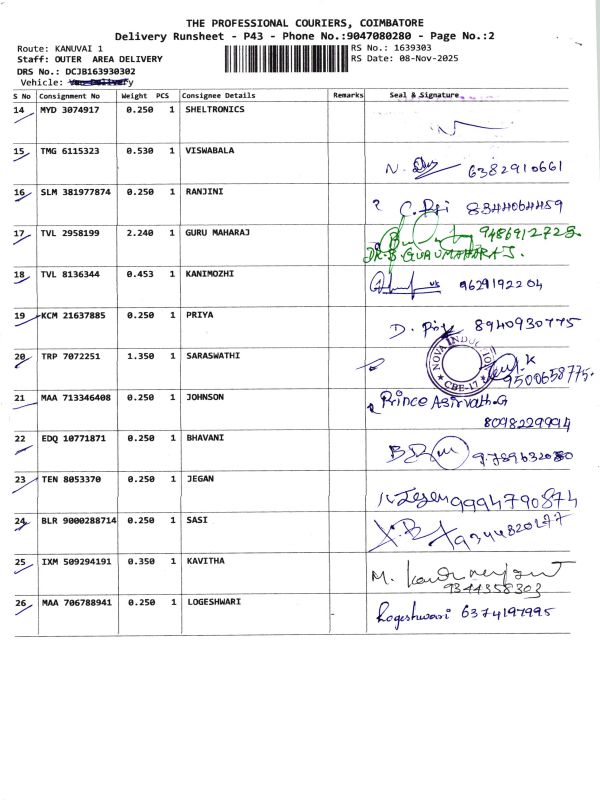 THE PROFESSIONAL COURIERS, COIMBATORE
Delivery Runsheet - P43 - Phone No.:9047080280 - Page No.:2
Route: KANUVAI 1 RS No.: 1639303
Staff: OUTER AREA DELIVERY RS Date: 08-Nov-2025
DRS No.: DCJB163930302
Vehicle: Van Delivery
S No Consignment No Weight PCS Consignee Details Remarks Seal & Signature
14 MYD 3074917 0.250 1 SHELTRONICS
15 TMG 6115323 0.530 1 VISWABALA
6382910661
16 SLM 381977874 0.250 1 RANJINI
8344064459
17 TVL 2958199 2.240 1 GURU MAHARAJ 9486912728.
DR.S.GURUMAHARAJ.
18 TVL 8136344 0.453 1 KANIMOZHI
9629192204
19 KCM 21637885 0.250 1 PRIYA
8940930775
20 TRP 7072251 1.350 1 SARASWATHI
NOVA INDUCTION
CBE-17
9500658775.
21 MAA 713346408 0.250 1 JOHNSON Prince Asirvath.G
8098229994
22 EDQ 10771871 0.250 1 BHAVANI
23 TEN 8053370 0.250 1 JEGAN
9994790874
24 BLR 9000288714 0.250 1 SASI
9344820177
25 IXM 509294191 0.350 1 KAVITHA
9344358303
26 MAA 706788941 0.250 1 LOGESHWARI
Logeshwari 6374197995